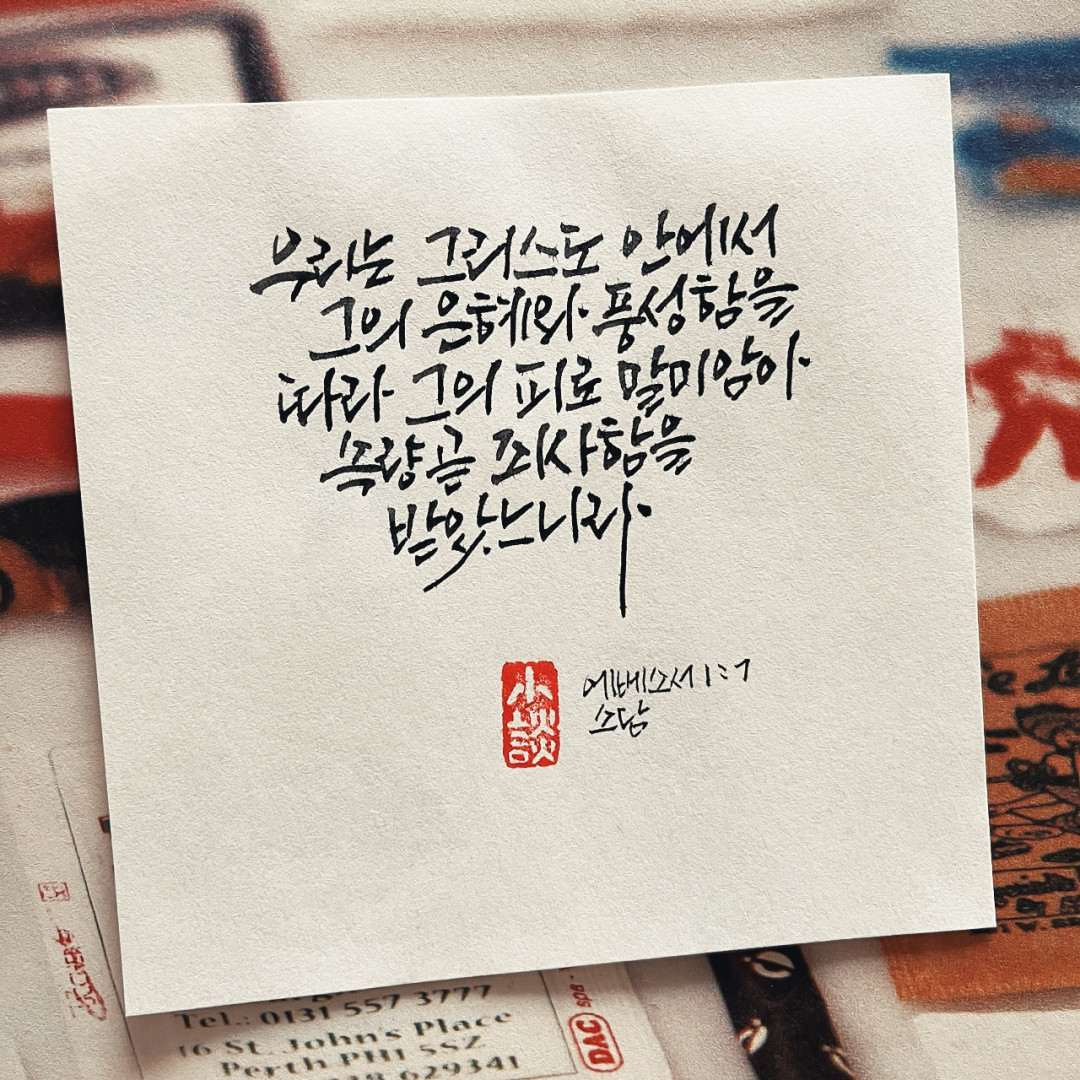 우리는 그리스도 안에서
그의 은혜와 풍성함을
따라 그의 피로 말미암아
속량곧 죄사함을
받았느니라
小談
에베소서 1:7
소담
Tel.: 0131 557 3777
16 St. John's Place
Perth PH1 5SZ
629341
DAC